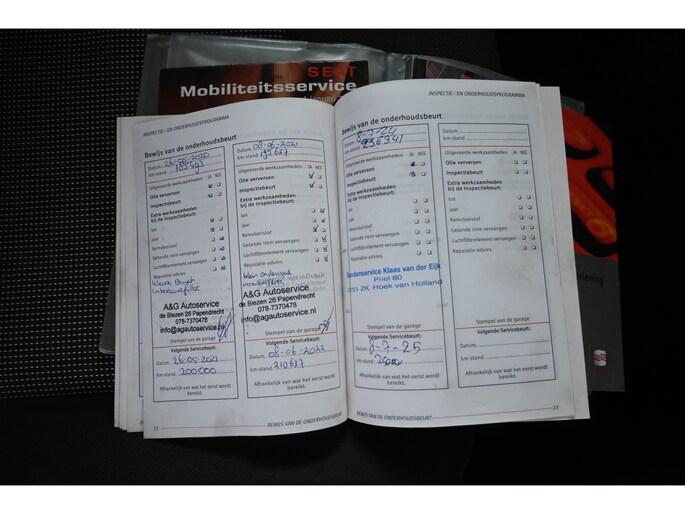 SEAT
Mobiliteitsservice
INSPECTIE- EN ONDERHOUDSPROGRAMMA
Bewijs van de onderhoudsbeurt
Datum 26-05-2020
km-stand
Uitgevoerde werkzaamheden JA NEE
Olie verversen
Inspectiebeurt
Extra werkzaamheden
bij de inspectiebeurt:
km
Jaar
Remvloeistof
Getande riem vervangen
Luchtfilterelement vervangen
Reparatie advies
A&G Autoservice
de Biezen 26 Papendrecht
078-7370478
info@agautoservice.nl
Stempel van de garage
Volgende Servicebeurt:
Datum 26-05-2021
km-stand 200000
Afhankelijk van wat het eerst wordt
bereikt.
22
Datum 08-06-2021
km-stand 195627
Uitgevoerde werkzaamheden JA NEE
Olie verversen
Inspectiebeurt
Extra werkzaamheden
bij de inspectiebeurt:
km
Jaar
Remvloeistof
Getande riem vervangen
Luchtfilterelement vervangen
Reparatie advies
A&G Autoservice
de Biezen 26 Papendrecht
078-7370478
info@agautoservice.nl
Stempel van de garage
Volgende Servicebeurt:
Datum 08-06-2022
km-stand 210627
Afhankelijk van wat het eerst wordt
bereikt.
BEWIJS VAN DE ONDERHOUDSBEURT
INSPECTIE- EN ONDERHOUDSPROGRAMMA
Bewijs van de onderhoudsbeurt
Datum 8-7-24
km-stand 236341
Uitgevoerde werkzaamheden JA NEE
Olie verversen
Inspectiebeurt
Extra werkzaamheden
bij de inspectiebeurt:
km
Jaar
Remvloeistof
Getande riem vervangen
Luchtfilterelement vervangen
Reparatie advies
Bandenservice Klaas van der Eijk
Priel 80
3151 ZK Hoek van Holland
Stempel van de garage
Volgende Servicebeurt:
Datum 8-7-25
km-stand
Afhankelijk van wat het eerst wordt
bereikt.
BEWIJS VAN DE ONDERHOUDSBEURT
Datum
km-stand
Uitgevoerde werkzaamheden JA NEE
Olie verversen
Inspectiebeurt
Extra werkzaamheden
bij de inspectiebeurt:
km
Jaar
Remvloeistof
Getande riem vervangen
Luchtfilterelement vervangen
Reparatie advies
Stempel van de garage
Volgende Servicebeurt:
Datum
km-stand
Afhankelijk van wat het eerst wordt
bereikt.
23